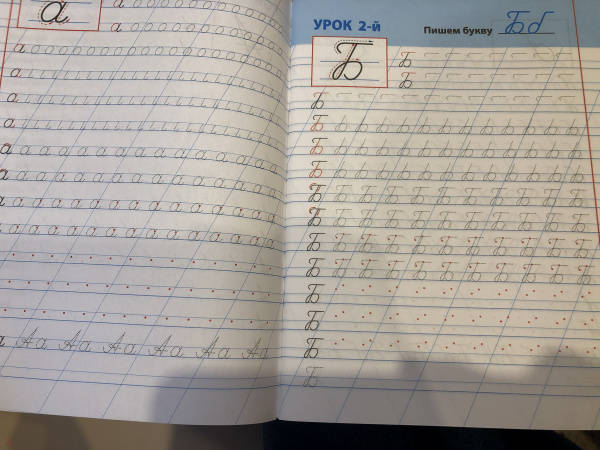 а
а
а
а
а
а
а
а а а а а а а а а а а а а а
а а а а а а а а а а а а а а
а а а а а а а а а а а а а а
а а а а а а а а а а а а а а
а Аа Аа Аа Аа Аа Аа
УРОК 2-й
Пишем букву Бб
Б
Б
Б
Б
Б
Б
Б
Б Б Б Б Б Б Б Б Б Б Б
Б Б Б Б Б Б Б Б Б Б Б
Б Б Б Б Б Б Б Б Б Б Б
Б Б Б Б Б Б Б Б Б Б Б
Б
Б
Б
Б